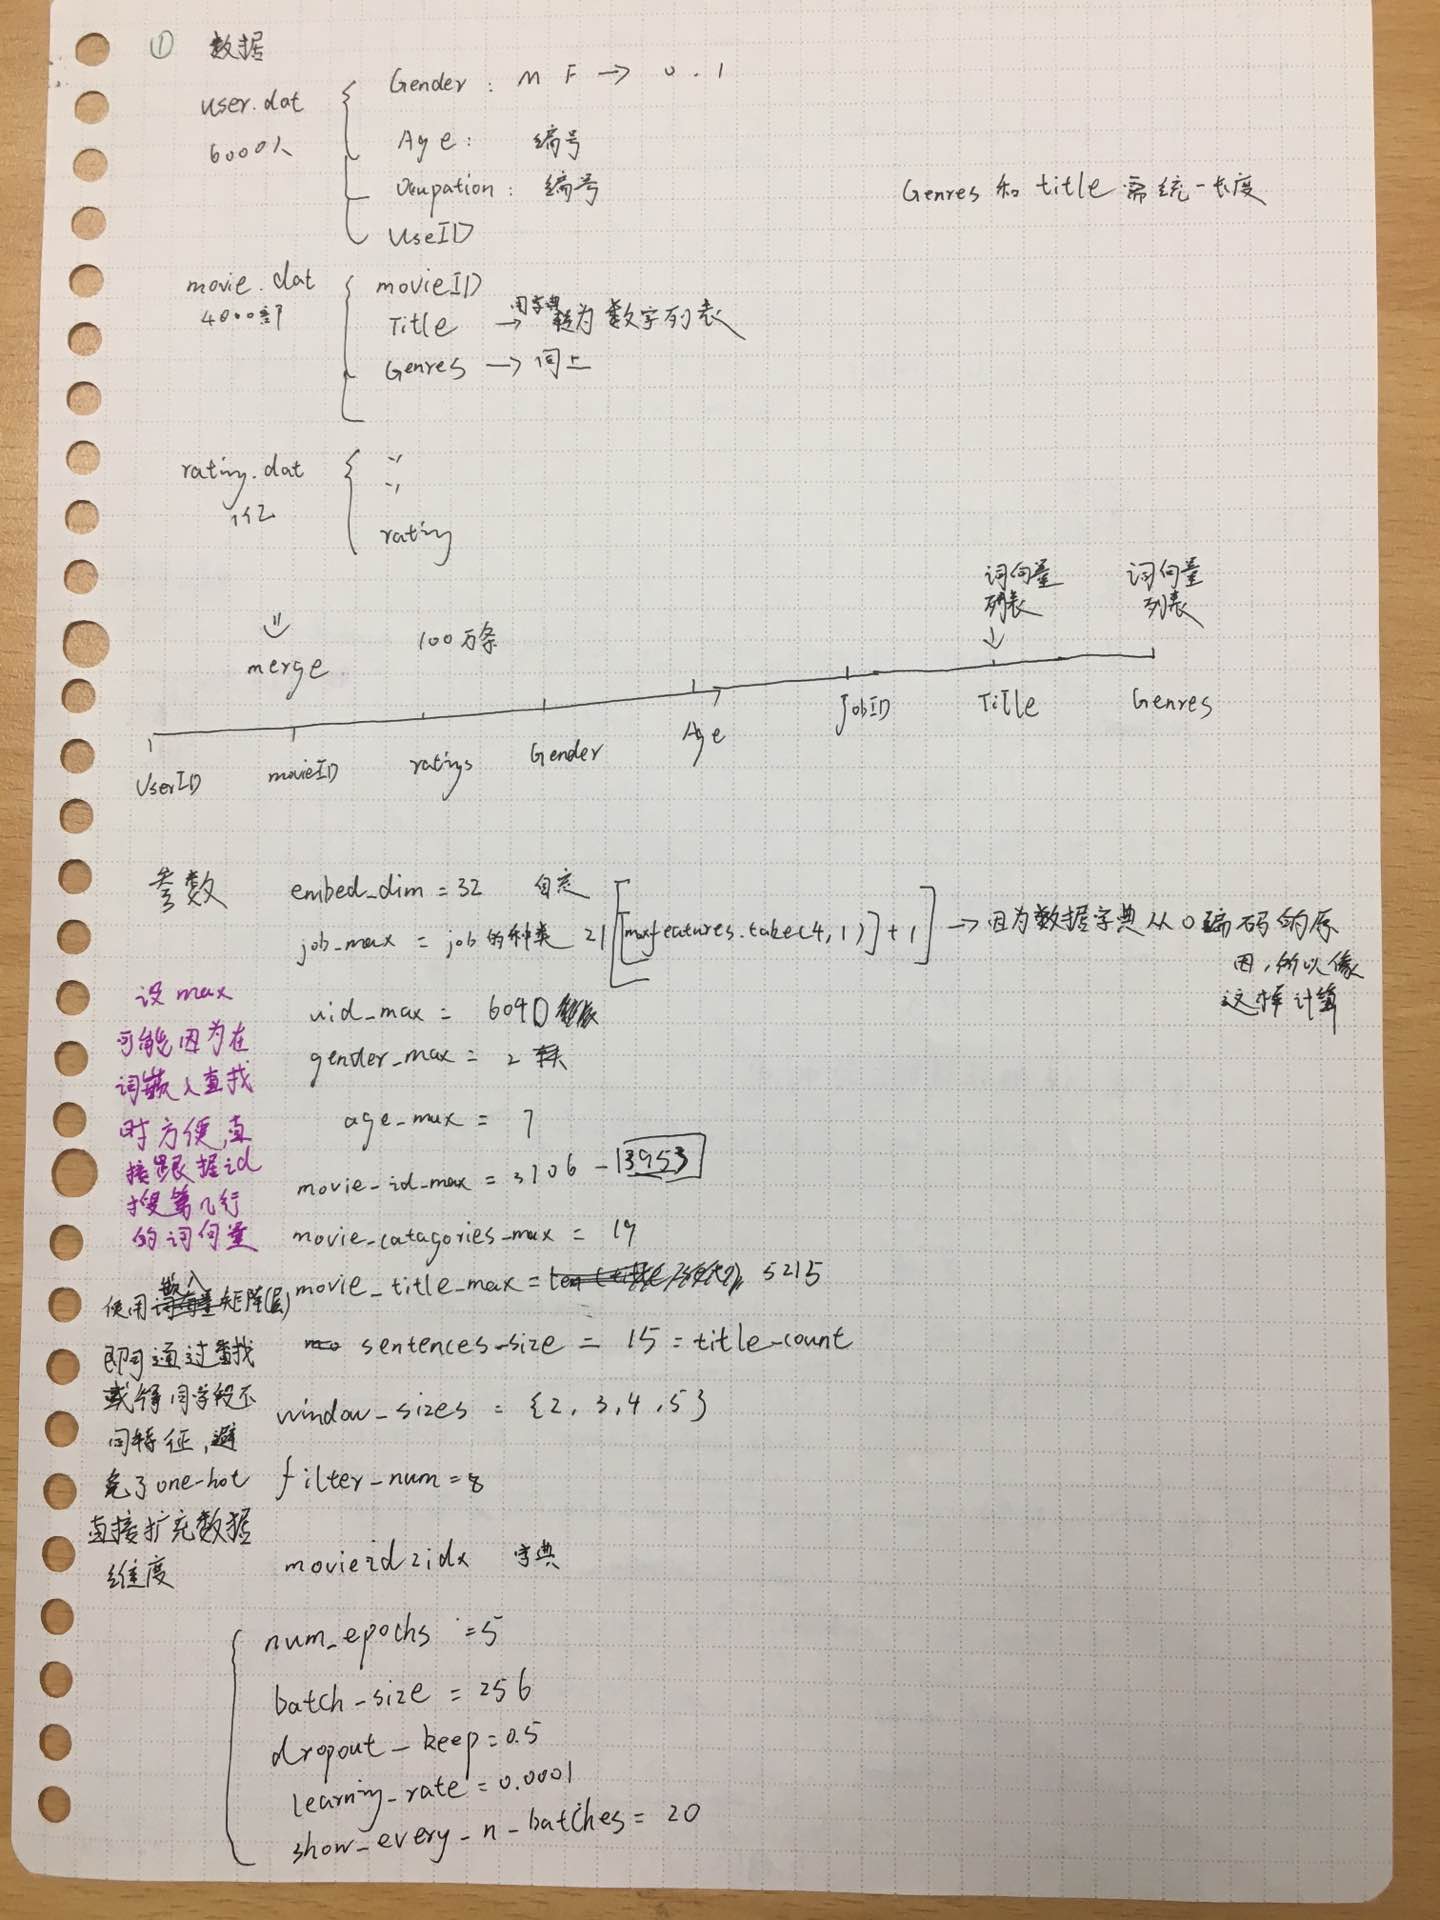 ① 数据
user.dat
6000人
Gender : M F → 0.1
Age : 编号
Ocupation : 编号
UseID
Genres 和 title 需统一长度
movie.dat
4000部
movieID
Title → 用字典 转为数字列表
Genres → 同上
rating.dat
1亿
rating
merge
100万条
词向量
列表
词向量
列表
UserID movieID ratings Gender Age JobID Title Genres
参数
embed_dim = 32 自定
job_max = job的种类 21 [[maxfeatures.take(4,1)]+1] → 因为数据字典从0编码的原
因,所以像
这样计算
uid_max = 6040
gender_max = 2
age_max = 7
movie_id_max = 3706 - 3953
movie_catagories_max = 19
movie_title_max = 5215
sentences_size = 15 = title_count
window_sizes = {2, 3, 4, 5}
filter_num = 8
movieid2idx 字典
设max
可能因为在
词嵌入查找
时方便,直
接跟据id
搜第几行
的词向量
使用嵌入矩阵(层)
即可通过查找
或得同字段不
同特征,避
免了one-hot
直接扩充数据
维度
num_epochs = 5
batch_size = 256
dropout_keep = 0.5
learning_rate = 0.0001
show_every_n_batches = 20